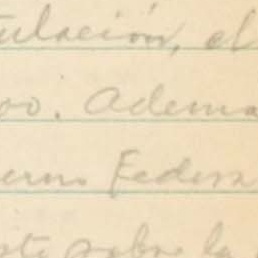 ulación, el
oo. Adema
erno Federa
ste sobre la